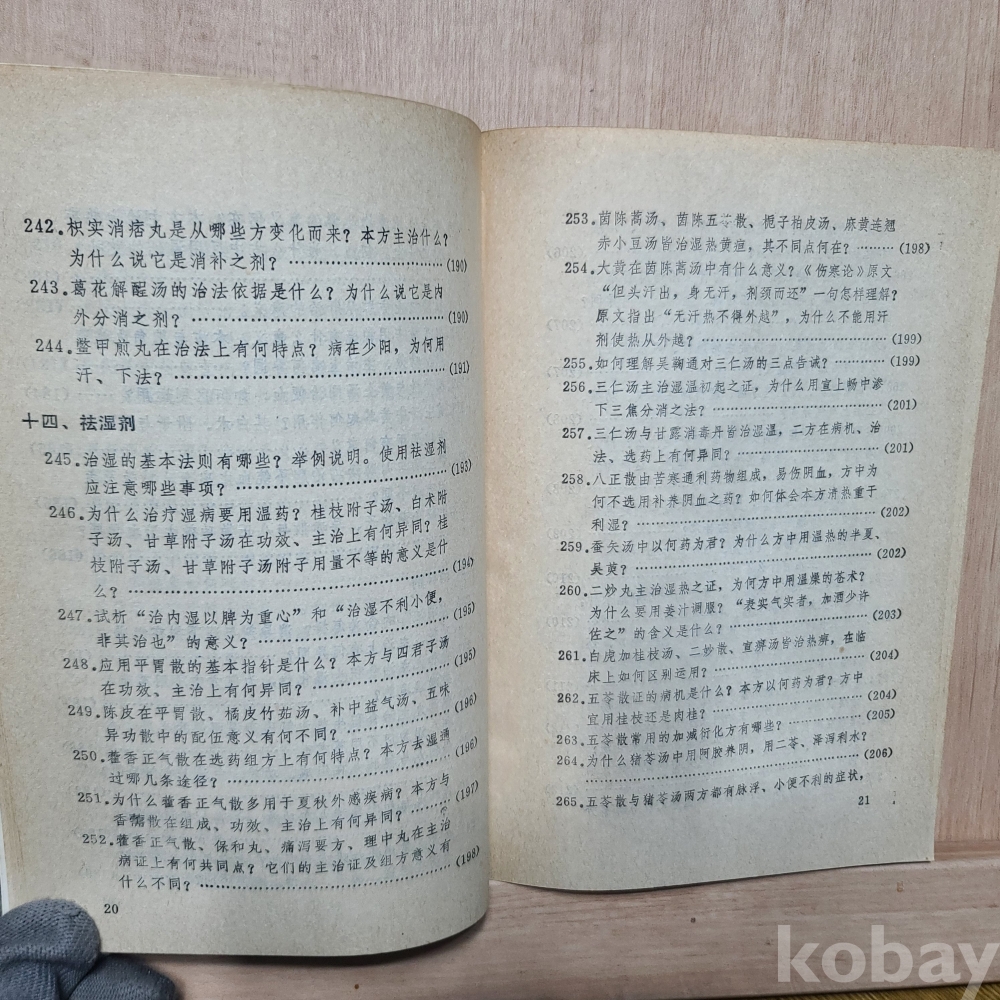 242.枳实消痞丸是从哪些方变化而来？本方主治什么？
为什么说它是消补之剂？………………(190)
243.葛花解酲汤的治法依据是什么？为什么说它是内
外分消之剂？………………(190)
244.鳖甲煎丸在治法上有何特点？病在少阳，为何用
汗、下法？………………(191)
十四、祛湿剂
245.治湿的基本法则有哪些？举例说明。使用祛湿剂
应注意哪些事项？………………(193)
246.为什么治疗湿病要用温药？桂枝附子汤、白术附
子汤、甘草附子汤在功效、主治上有何异同？桂
枝附子汤、甘草附子汤附子用量不等的意义是什
么？………………(194)
247.试析“治内湿以脾为重心”和“治湿不利小便，
非其治也”的意义？………………(195)
248.应用平胃散的基本指针是什么？本方与四君子汤
在功效、主治上有何异同？………………(195)
249.陈皮在平胃散、橘皮竹茹汤、补中益气汤、五味
异功散中的配伍意义有何不同？………………(196)
250.藿香正气散在选药组方上有何特点？本方去湿通
过哪几条途径？………………(196)
251.为什么藿香正气散多用于夏秋外感疾病？本方与
香薷散在组成、功效、主治上有何异同？………………(197)
252.藿香正气散、保和丸、痛泻要方、理中丸在主治
病证上有何共同点？它们的主治证及组方意义有
什么不同？………………(198)
20
253.茵陈蒿汤、茵陈五苓散、栀子柏皮汤、麻黄连翘
赤小豆汤皆治湿热黄疸，其不同点何在？………(198)
254.大黄在茵陈蒿汤中有什么意义？《伤寒论》原文
“但头汗出，身无汗，剂须而还”一句怎样理解？
原文指出“无汗热不得外越”，为什么不能用汗
剂使热从外越？………………(199)
255.如何理解吴鞠通对三仁汤的三点告诫？…………(199)
256.三仁汤主治湿温初起之证，为什么用宣上畅中渗
下三焦分消之法？………………(201)
257.三仁汤与甘露消毒丹皆治湿温，二方在病机、治
法、选药上有何异同？………………(201)
258.八正散由苦寒通利药物组成，易伤阴血，方中为
何不选用补养阴血之药？如何体会本方清热重于
利湿？………………(202)
259.蚕矢汤中以何药为君？为什么方中用温热的半夏、
吴萸？………………(202)
260.二妙丸主治湿热之证，为何方中用温燥的苍术？
为什么要用姜汁调服？“表实气实者，加酒少许
佐之”的含义是什么？………………(203)
261.白虎加桂枝汤、二妙散、宣痹汤皆治热痹，在临
床上如何区别运用？………………(204)
262.五苓散证的病机是什么？本方以何药为君？方中
宜用桂枝还是肉桂？………………(204)
263.五苓散常用的加减衍化方有哪些？………………(205)
264.为什么猪苓汤中用阿胶养阴，用二苓、泽泻利水？
………………(206)
265.五苓散与猪苓汤两方都有脉浮、小便不利的症状，
21
kobay